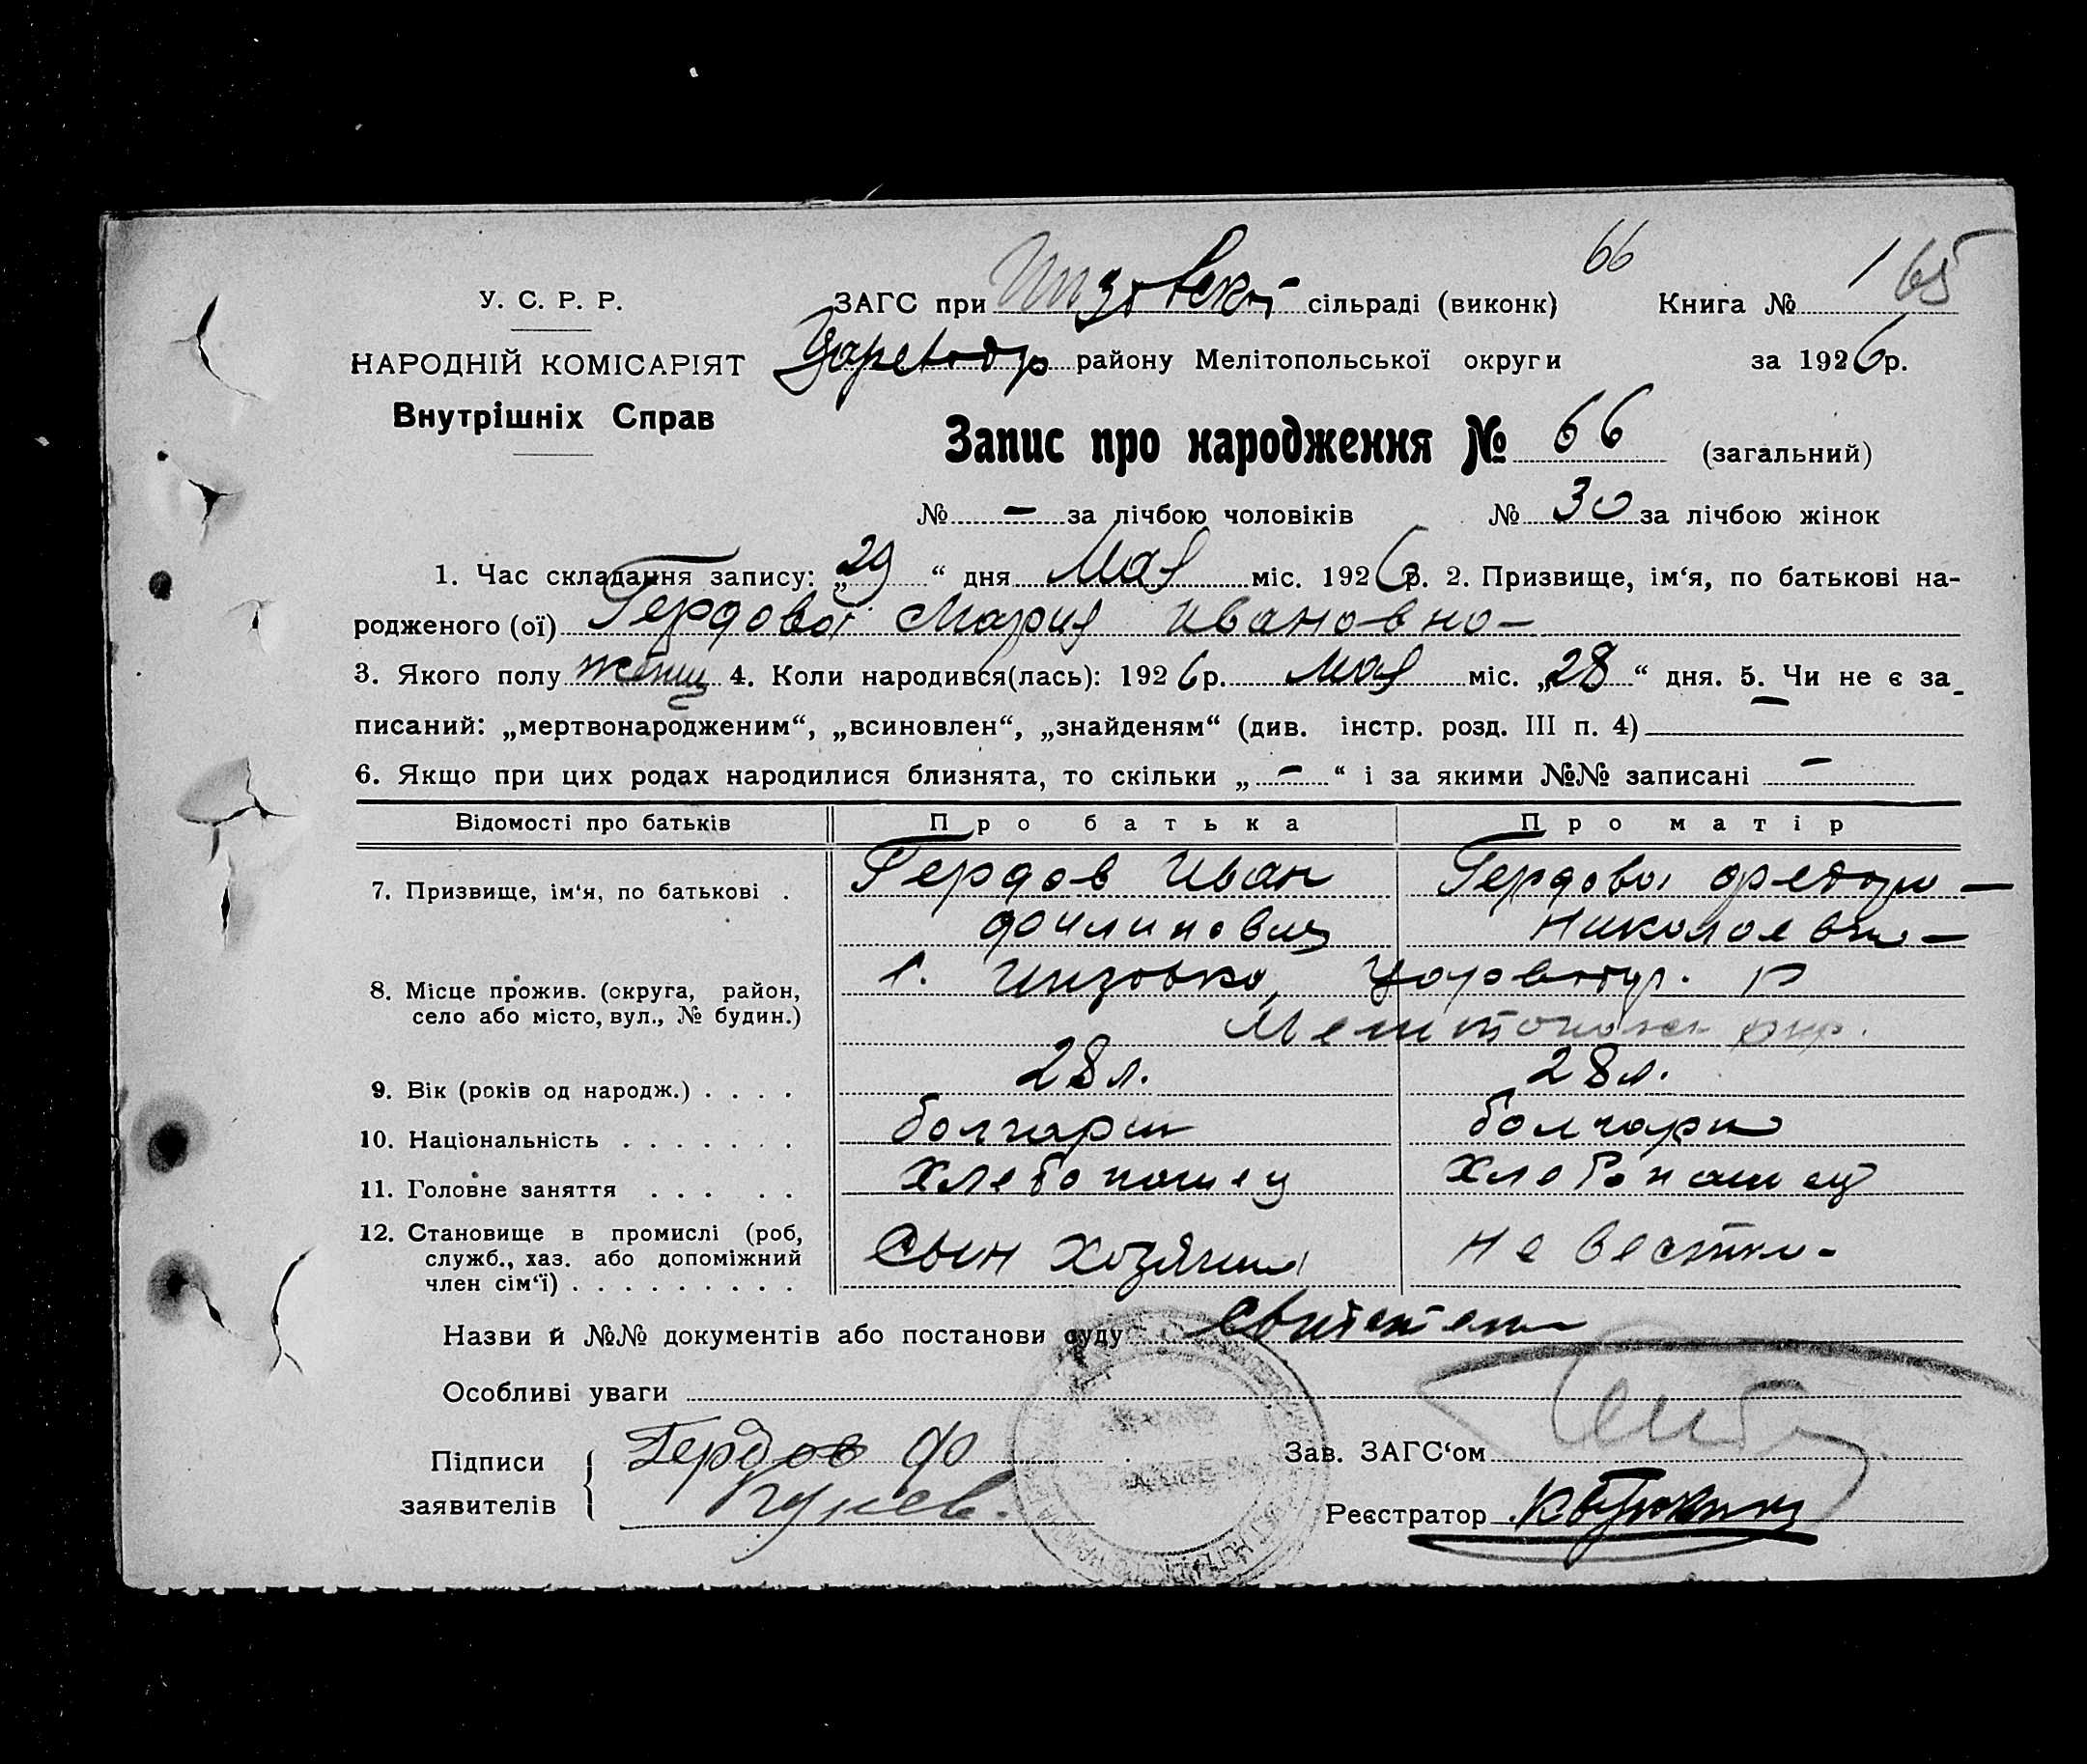 66
1 65
У. С. Р. Р.
ЗАГС при Инзовской сільраді (виконк)
Книга №
НАРОДНІЙ КОМІСАРІЯТ
Цареводр району Мелітопольської округи
за 1926 р.
Внутрішніх Справ
Запис про народження № 66 (загальний)
№ — за лічбою чоловіків № 30 за лічбою жінок
1. Час складання запису: „29“ дня Мая міс. 1926 р. 2. Призвище, ім‘я, по батькові на-
родженого (ої) Гердова Мария Ивановна
3. Якого полу женщ 4. Коли народився(лась): 1926 р. мая міс. „28“ дня. 5. Чи не є за-
писаний: „мертвонародженим“, „всиновлен“, „знайденям“ (див. інстр. розд. III п. 4) —
6. Якщо при цих родах народилися близнята, то скільки „—“ і за якими №№ записані —
Відомості про батьків Про батька Про матір
7. Призвище, ім‘я, по батькові . Гердов Иван Гердова
Филипович Николаевна
8. Місце прожив. (округа, район, с. Инзовка, Цареводр. р
село або місто, вул., № будин.) Мелитопольск окр.
9. Вік (років од народж.) . . . . 28 л. 28 л.
10. Національність . . . . . . . болгарин болгарка
11. Головне заняття . . . . . хлебопашец хлебопашец
12. Становище в промислі (роб,
служб., хаз. або допоміжний сын хозяина невестка
член сім‘ї) . . . . . . . . .
Назви й №№ документів або постанови суду
Особливі уваги
Підписи Гердов Ф
Зав. ЗАГС‘ом
заявителів
Реєстратор